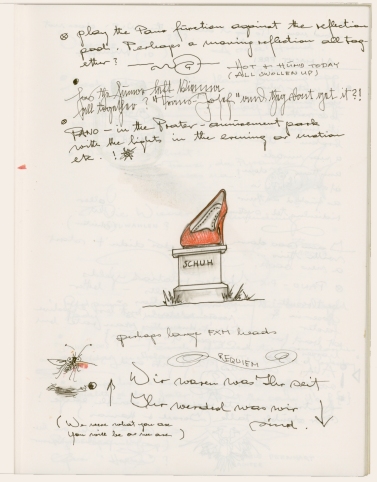 play the Pano function against the reflection
pool. Perhaps a moving reflection all tog
ether?
HOT + HUMID TODAY
(ALL SWOLLEN UP)
has the humor left Vienna
all together? "Franz-Josef" and they don't get it?!
PANO - in the Prater - amusement park
with the lights in the evening or motion
etc. !
SCHUH
perhaps large FXM heads
REQUIEM
Wir waren was Ihr seit
Ihr werded was wir
sind.
(We were what you are
You will be as we are)